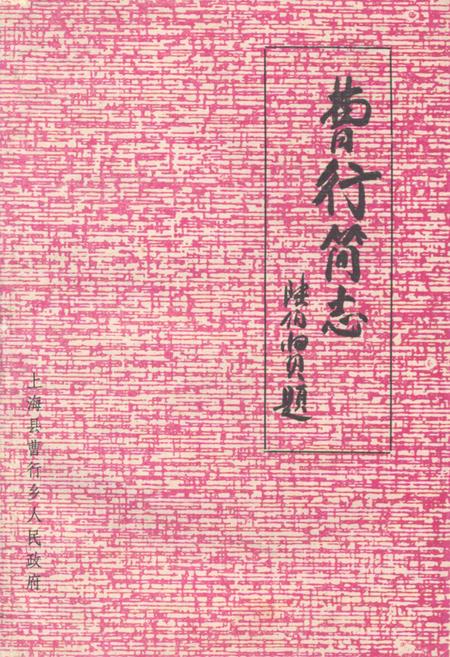 曹行简志
题
上海县曹行乡人民政府